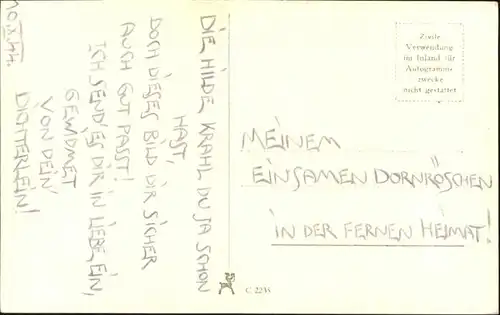 DIE HILDE KRAHL DU JA SCHON
HAST,
DOCH DIESES BILD DIR SICHER
AUCH GUT PASST!
ICH SEND ES DIR IN LIEBE EIN,
GEWIDMET
VON DEIN'
DICHTERLEIN!
10.X.44
Zivile
Verwendung
im Inland für
Autogramm-
zwecke
nicht gestattet
MEINEM
EINSAMEN DORNRÖSCHEN
IN DER FERNEN HEIMAT!
C 2235